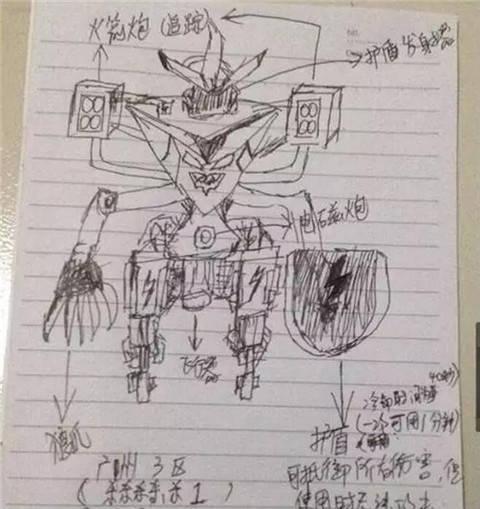 火箭炮(追踪)
护盾发射器
电磁炮
飞行器
冷却时间
(一次可用1分钟)
护盾
可抵御所有伤害,但
使用时无法攻击
广州3区
(杀杀杀杀.杀1)